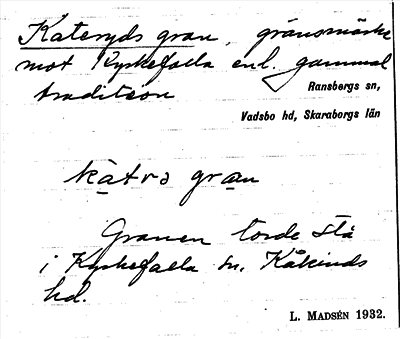 Kateryds gran, gränsmärke
mot Kyrkefalla enl. gammal
tradition
Ransbergs sn,
Vadsbo hd, Skaraborgs län
kàtrə gran
Granen torde stå
i Kyrkefalla sn. Kåkinds
hd.
L. MADSÉN 1932.